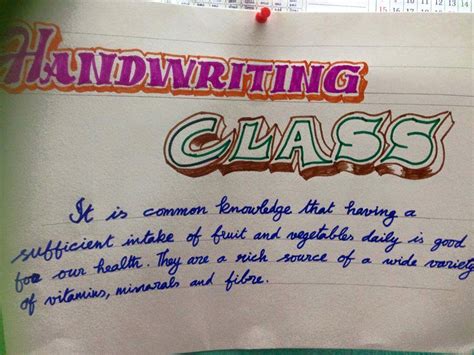 HANDWRITING
CLASS
It is common knowledge that having a
sufficient intake of fruit and vegetables daily is good
for our health. They are a rich source of a wide variety
of vitamins, minarals and fibre.